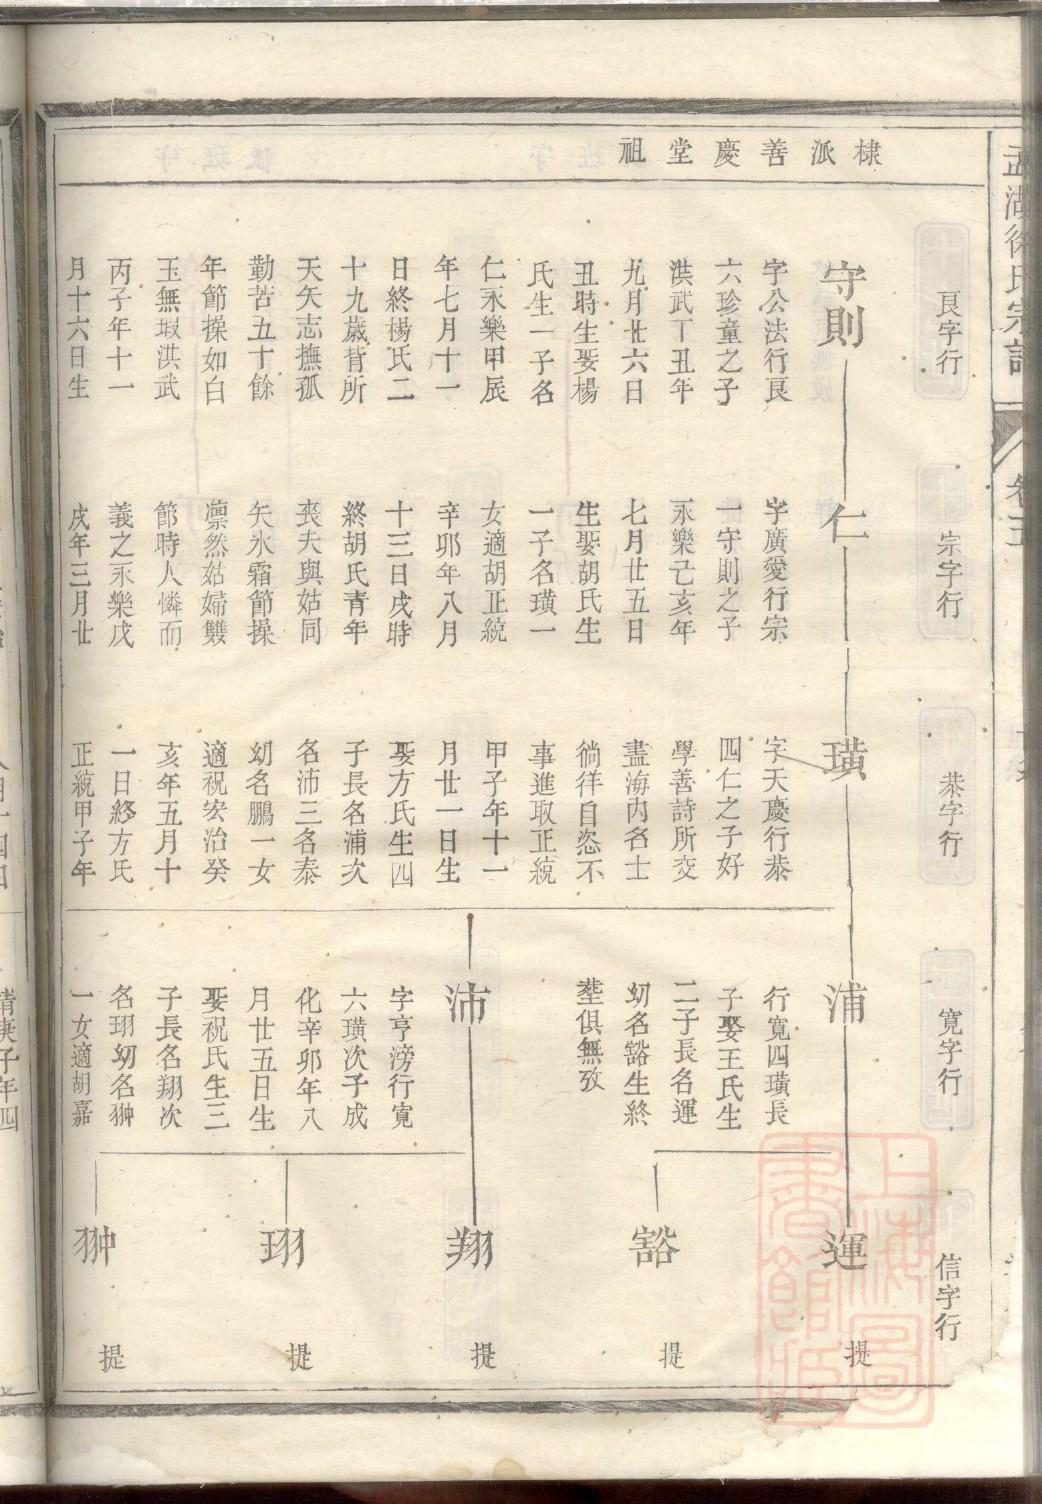 棣派善慶堂祖
孟湖徐氏宗譜
卷五
良字行
守則
字公法行良
六珍童之子
洪武丁丑年
九月廿六日
丑時生娶楊
氏生一子名
仁永樂甲辰
年七月十一
日終楊氏二
十九歲背所
天矢志撫孤
勤苦五十餘
年節操如白
玉無瑕洪武
丙子年十一
月十六日生
宗字行
仁
字廣愛行宗
一守則之子
永樂己亥年
七月廿五日
生娶胡氏生
一子名璜一
女適胡正統
辛卯年八月
十三日戌時
終胡氏青年
喪夫與姑同
矢氷霜節操
凛然姑婦雙
節時人憐而
義之永樂戊
戌年三月廿
恭字行
璜
字天慶行恭
四仁之子好
學善詩所交
盡海内名士
徜徉自恣不
事進取正統
甲子年十一
月廿一日生
娶方氏生四
子長名浦次
名沛三名泰
幼名鵬一女
適祝宏治癸
亥年五月十
一日終方氏
正統甲子年
寛字行
浦
行寛四璜長
子娶王氏生
二子長名運
幼名豁生終
塟俱無攷
沛
字亨滂行寛
六璜次子成
化辛卯年八
月廿五日生
娶祝氏生三
子長名翔次
名珝幼名翀
一女適胡嘉
信字行
運
提
豁
提
翔
提
珝
提
翀
提
靖庚子年四
上海圖書館藏